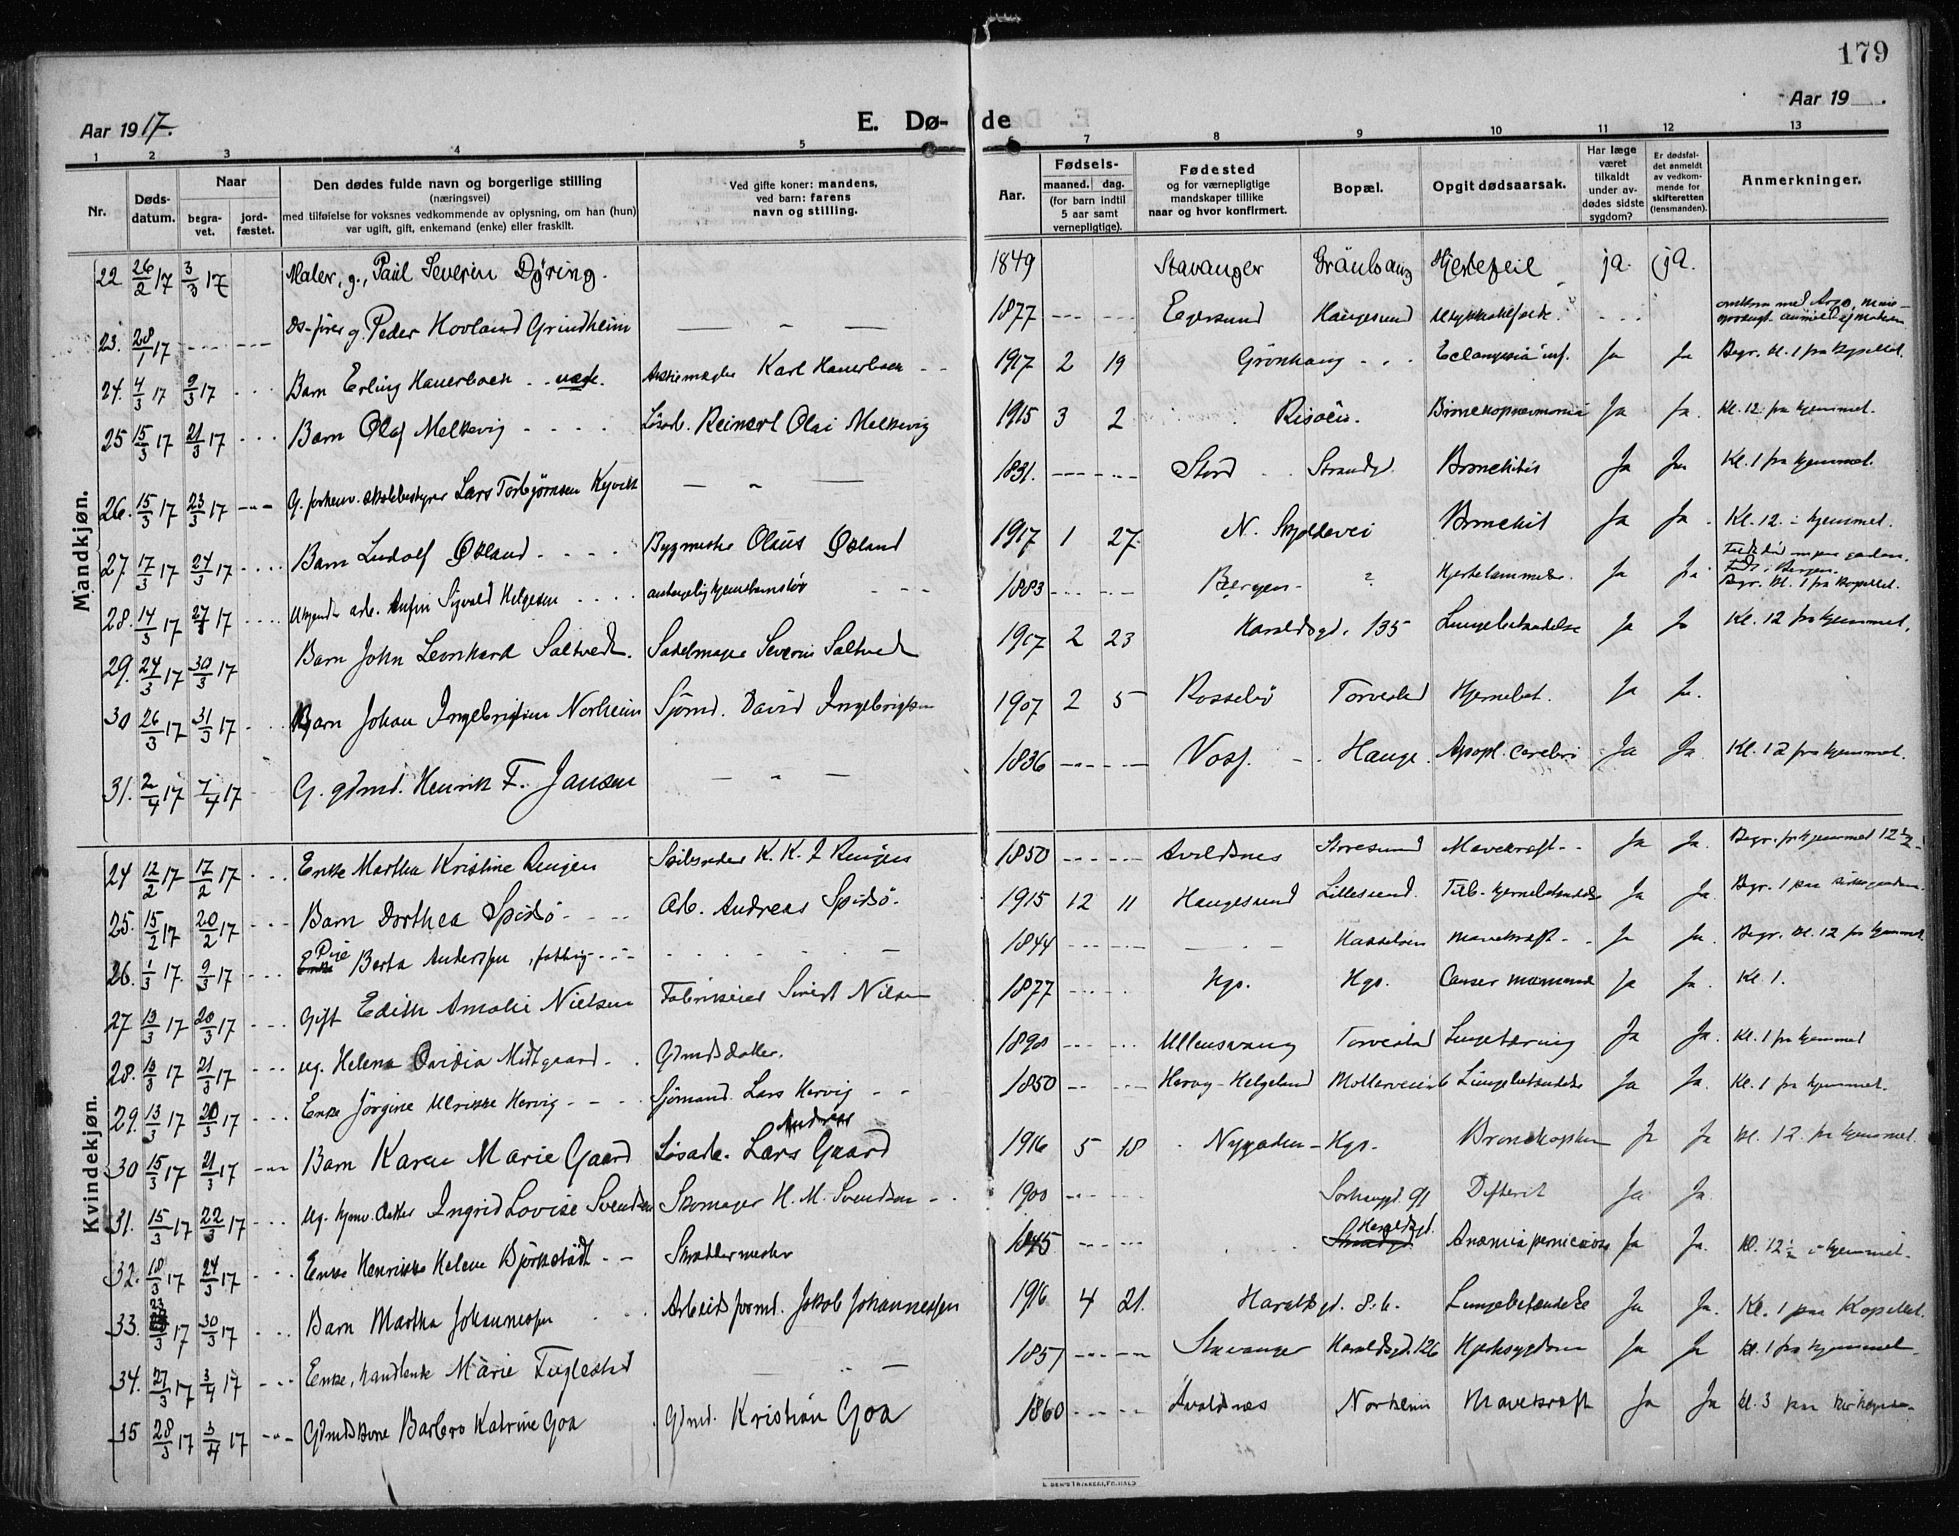 179
Aar 1917.
E. Dø-
de
Aar 19
1 2 3 4 5 6 7 8 9 10 11 12 13
Nr.
Døds-
datum.
Naar
begra-
vet.
jord-
fæstet.
Den dødes fulde navn og borgerlige stilling
(næringsvei)
med tilføielse for voksnes vedkommende av oplysning, om han (hun)
var ugift, gift, enkemand (enke) eller fraskilt.
Ved gifte koner: mandens,
ved barn: farens
navn og stilling.
Aar.
Fødsels-
maaned. dag.
(for barn indtil
5 aar samt
vernepligtige).
Fødested
og for værnepligtige
mandskaper tillike
naar og hvor konfirmert.
Bopæl.
Opgit dødsaarsak.
Har læge
været
tilkaldt
under av-
dødes sidste
sygdom?
Er dødsfal-
det anmeldt
av vedkom-
mende for
skifteretten
(lensmanden).
Anmerkninger.
Mandkjøn.
22 26/2 17 3/3 17 Maler, g., Paul Severin Døring. 1849 Stavanger Hjertefeil ja. ja.
23. 28/1 17 g. Peder Hovland Grindheim — " — 1877 Egersund Haugesund
24. 4/3 17 9/3 17 Barn Erling Hauerbach Karl Hauerbach 1917 2 19 Grønhaug Eclampsia inf. Ja Ja Begr. kl. 1 fra Kapellet.
25 15/3 17 21/3 17 Barn Olaf Melkevig Løsarb. Reinert Olai Melkevig 1915 3 2 Risøen. Ja Ja. Kl. 12 fra hjemmet.
26. 15/3 17 23/3 17 G. forhenv. skolebestyrer Lars Torbjørnsen Kyvik — " — 1831. Stord Strandg. Bronchitis Ja Ja Kl. 1 fra hjemmet.
27. 17/3 17 24/3 17 Barn Ludolf Økland Bygmester Olaus Økland 1917 1 27. N. Skjoldavei Bronchit Ja Ja. Kl. 12 i hjemmet.
28. 14/3 17 27/3 17 arb. Sigvald Helgesen 1883 Bergen ? Hjertelammelse. Ja Begr. kl. 1 fra Kapellet.
29. 24/3 17 30/3 17 Barn John Leonhard Saltvedt. Sadelmager Severin Saltvedt 1917 2 23 Haraldsgd. 135 Lungebetændelse Ja Ja Kl. 12 fra hjemmet.
30 26/3 17 31/3 17 Barn Johan Ingebrigtsen Norheim Sjømd. David Ingebrigtsen 1907 2 5 Rossebø Torvestad Hjernebet. Ja Ja.
31. 2/4 17 7/4 17 G. gdmd. Henrik F. Jansen — " — 1836 Voss. Hauge. Apopl. cerebri Ja Ja. Kl. 12 fra hjemmet.
Kvindekjøn.
24 12/2 17 17/2 17 Enke Martha Kristine Ringen Skibsreder K. K. Ringen 1850 Avaldsnes Storesund Mavekræft Ja Ja. Begr. fra hjemmet 12 1/2
25. 15/2 17 20/2 17 Barn Dorthea Spidsø Arb. Andreas Spidsø. 1915 12 11 Haugesund Lillesund. Tub. hjernebetændelse Ja Ja. Begr. 1 paa kirkegaarden.
26. 1/3 17. 9/3 17 Pige Berta Anderssen, fattig 1844 Hasseløen Mavekræft Ja Ja. Begr. kl. 12 fra hjemmet.
27 13/3 17 20/3 17 Gift Edith Amalie Nielsen Fabrikeier Sivert Nilsen 1877 Hgs. Hgs. Cancer mammae Ja Ja Kl. 1.
28. 13/3 17 21/3 17 ug. Helena Ovidia Midtgaard Gdmdsdatter. 1898 Ullensvang Torvestad Lungetæring Ja Ja. Kl. 1 fra hjemmet
29. 13/3 17 20/3 17 Enke Jörgine Ulrikke Hervig Sjømand Lars Hervig 1850 Hervig – Helgeland Møllerveien 6 Lungebetændelse Ja Ja Kl. 1 fra hjemmet.
30 15/3 17 21/3 17 Barn Karen Marie Gaard Løsarb. Lars Andreas Gaard 1916 5 18 Nygaden – Hgs. Ja Ja Kl. 12 fra hjemmet.
31. 15/3 17 22/3 17 ug. hjemv. datter Ingrid Lovise Svendsen Skomager H. M. Svendsen 1900 Sørhaugd. 91 Difterit Ja Ja.
32. 18/3 17 24/3 17 Enke Henrikke Helene Björkstådt Skræddermester 1845 Haraldsgd. Anæmia perniciosa Ja Ja. Kl. 12 1/2 i hjemmet.
33. 23/3 17 30/3 17 Barn Martha Johannessen Arbeidsformd. Jakob Johannessen 1916 4 21. Haraldsgd. 86. Lungebetændelse Ja Ja. Kl. 1 paa Kapellet.
34. 27/3 17 3/4 17 Enke, handlende Marie Fuglestad — 1857 Stavanger Haraldsgd. 126 Hjertesygdom Ja Ja Kl. 1 fra hjemmet.
35 28/3 17 3/4 17 Gdmdskone Barbro Katrine Goa Gdmd. Kristian Goa 1860 Avaldsnes Norheim Mavekræft Ja Ja Kl. 3 paa kirkegaarden